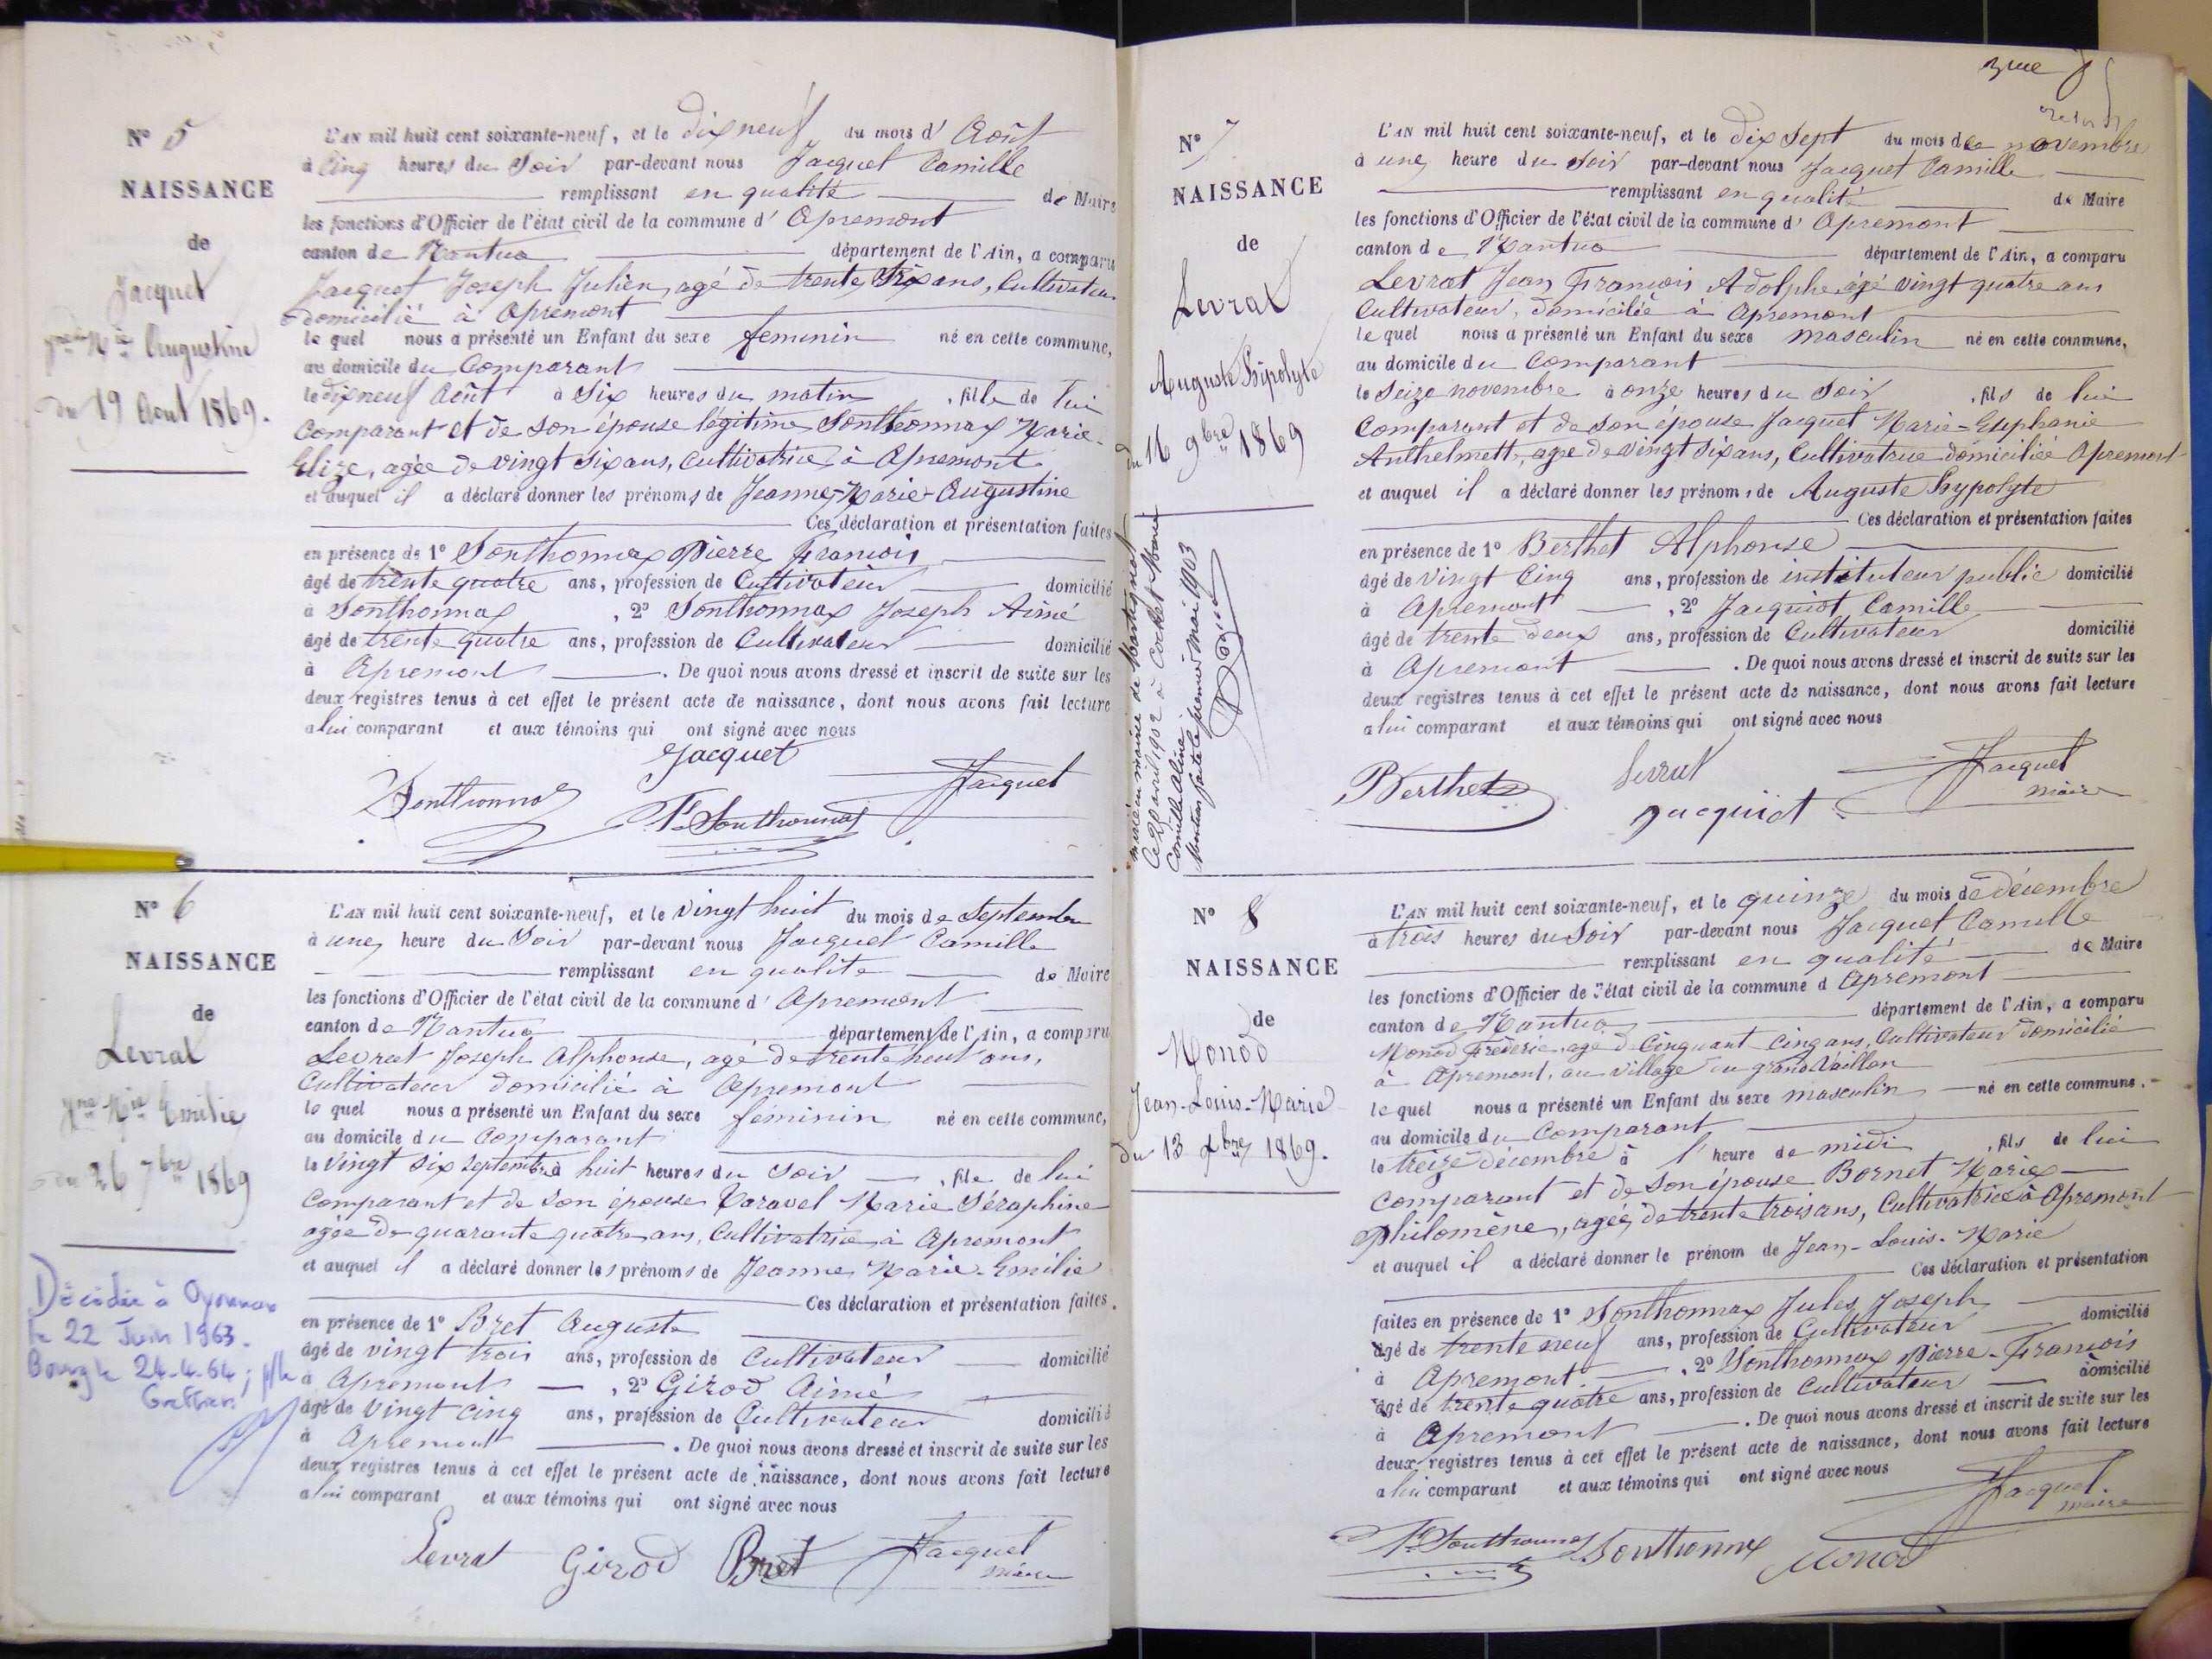 N° 5
NAISSANCE
de
Jacquet
Jne Mie Augustine
du 19 Août 1869.
L'AN mil huit cent soixante-neuf, et le dix neuf du mois d' Août
à Cinq heures du Soir par-devant nous Jacquet Camille
remplissant en qualité de Maire
les fonctions d'Officier de l'état civil de la commune d' Apremont
canton de Nantua département de l'Ain, a comparu
Jacquet Joseph Julien, agé de trente six ans, Cultivateur
domicilié à Apremont
le quel nous a présenté un Enfant du sexe feminin né en cette commune,
au domicile du Comparant
le dix neuf Août à Six heures du matin, fille de lui
Comparant et de son épouse légitime Sonthonnax Marie-
Elize, agée de vingt six ans, cultivatrice à Apremont
et auquel il a déclaré donner les prénoms de Jeanne-Marie-Augustine
Ces déclaration et présentation faites
en présence de 1° Sonthonnax Pierre François
âgé de trente quatre ans, profession de Cultivateur domicilié
à Sonthonnax, 2° Sonthonnax Joseph Aimé
âgé de trente quatre ans, profession de Cultivateur domicilié
à Apremont. De quoi nous avons dressé et inscrit de suite sur les
deux registres tenus à cet effet le présent acte de naissance, dont nous avons fait lecture
a lui comparant et aux témoins qui ont signé avec nous
Jacquet
Sonthonnax F. Sonthonnax Jacquet
N° 6
NAISSANCE
de
Levrat
Jne Mie Emilie
du 26 7bre 1869
Décédée à Oyonnax
le 22 Juin 1963.
Bourg le 24-4-64;
L'AN mil huit cent soixante-neuf, et le vingt huit du mois de Septembre
à une heure du Soir par-devant nous Jacquet Camille
remplissant en qualité de Maire
les fonctions d'Officier de l'état civil de la commune d' Apremont
canton de Nantua département de l'Ain, a comparu
Levrat Joseph Alphonse, agé de trente huit ans,
Cultivateur domicilié à Apremont
le quel nous a présenté un Enfant du sexe féminin né en cette commune,
au domicile du Comparant
le vingt six septembre à huit heures du Soir, fille de lui
Comparant et de son épouse Taravel Marie Séraphine
agée de quarante quatre ans, Cultivatrice à Apremont
et auquel il a déclaré donner les prénoms de Jeanne Marie-Emilie
Ces déclaration et présentation faites.
en présence de 1° Bret Auguste
âgé de vingt trois ans, profession de Cultivateur domicilié
à Apremont, 2° Girod Aimé
âgé de vingt cinq ans, profession de Cultivateur domicilié
à Apremont. De quoi nous avons dressé et inscrit de suite sur les
deux registres tenus à cet effet le présent acte de naissance, dont nous avons fait lecture
a lui comparant et aux témoins qui ont signé avec nous
Levrat Girod Bret Jacquet
maire
3me
N° 7
NAISSANCE
de
Levrat
Auguste Hipolyte
du 16 9bre 1869
marié en mairie de Martignat
le 20 avril 1902 à Cochet Marie
Camille Aline
Mention faite le premier mai 1903
L'AN mil huit cent soixante-neuf, et le dix Sept du mois de novembre
à une heure du Soir par-devant nous Jacquet Camille
remplissant en qualité de Maire
les fonctions d'Officier de l'état civil de la commune d' Apremont
canton de Nantua département de l'Ain, a comparu
Levrat Jean François Adolphe âgé vingt quatre ans
Cultivateur, domicilié à Apremont
le quel nous a présenté un Enfant du sexe masculin né en cette commune,
au domicile du Comparant
le Seize novembre à onze heures du Soir, fils de lui
Comparant et de son épouse Jacquet Marie-Euphanie
Anthelmette, agée de vingt six ans, Cultivatrice domiciliée Apremont
et auquel il a déclaré donner les prénoms de Auguste Hypolyte
Ces déclaration et présentation faites
en présence de 1° Berthet Alphonse
âgé de vingt Cinq ans, profession de instituteur public domicilié
à Apremont, 2° Jacquiot Camille
âgé de trente deux ans, profession de Cultivateur domicilié
à Apremont. De quoi nous avons dressé et inscrit de suite sur les
deux registres tenus à cet effet le présent acte de naissance, dont nous avons fait lecture
a lui comparant et aux témoins qui ont signé avec nous
Berthet Levrat Jacquet
Jacquiot maire
N° 8
NAISSANCE
de
Monod
Jean-Louis-Marie
du 13 Xbre 1869.
L'AN mil huit cent soixante-neuf, et le quinze du mois de décembre
à trois heures du Soir par-devant nous Jacquet Camille
remplissant en qualité de Maire
les fonctions d'Officier de l'état civil de la commune d Apremont
canton de Nantua département de l'Ain, a comparu
Monod Frédéric, agé de Cinquant Cinq ans, Cultivateur domicilié
à Apremont, au village du grand Vaillon
le quel nous a présenté un Enfant du sexe masculin né en cette commune.
au domicile du Comparant
le treize décembre à l'heure de midi, fils de lui
Comparant et de son épouse Bornet Marie
Philomène, agée de trente trois ans, Cultivatrice à Apremont
et auquel il a déclaré donner le prénom de Jean-Louis-Marie
Ces déclaration et présentation
faites en présence de 1° Sonthonnax Jules Joseph
âgé de trente neuf ans, profession de Cultivateur domicilié
à Apremont, 2° Sonthonnax Pierre-François
âgé de trente quatre ans, profession de Cultivateur domicilié
à Apremont. De quoi nous avons dressé et inscrit de suite sur les
deux registres tenus à cet effet le présent acte de naissance, dont nous avons fait lecture
a lui comparant et aux témoins qui ont signé avec nous
Jacquet
maire
F. Sonthonnax Sonthonnax Monod